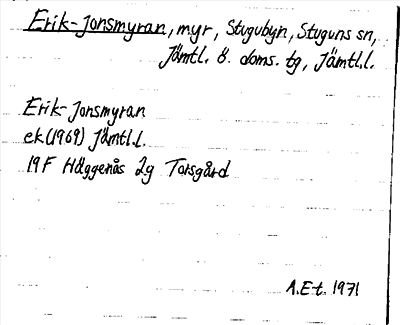 Erik-Jonsmyran, myr, Stugubyn, Stuguns sn,
Jämtl. ö. doms. tg, Jämtl.l.
Erik-Jonsmyran
ek(1969) Jämtl.l.
19F Häggenås 2g Torsgård
A.E-t. 1971